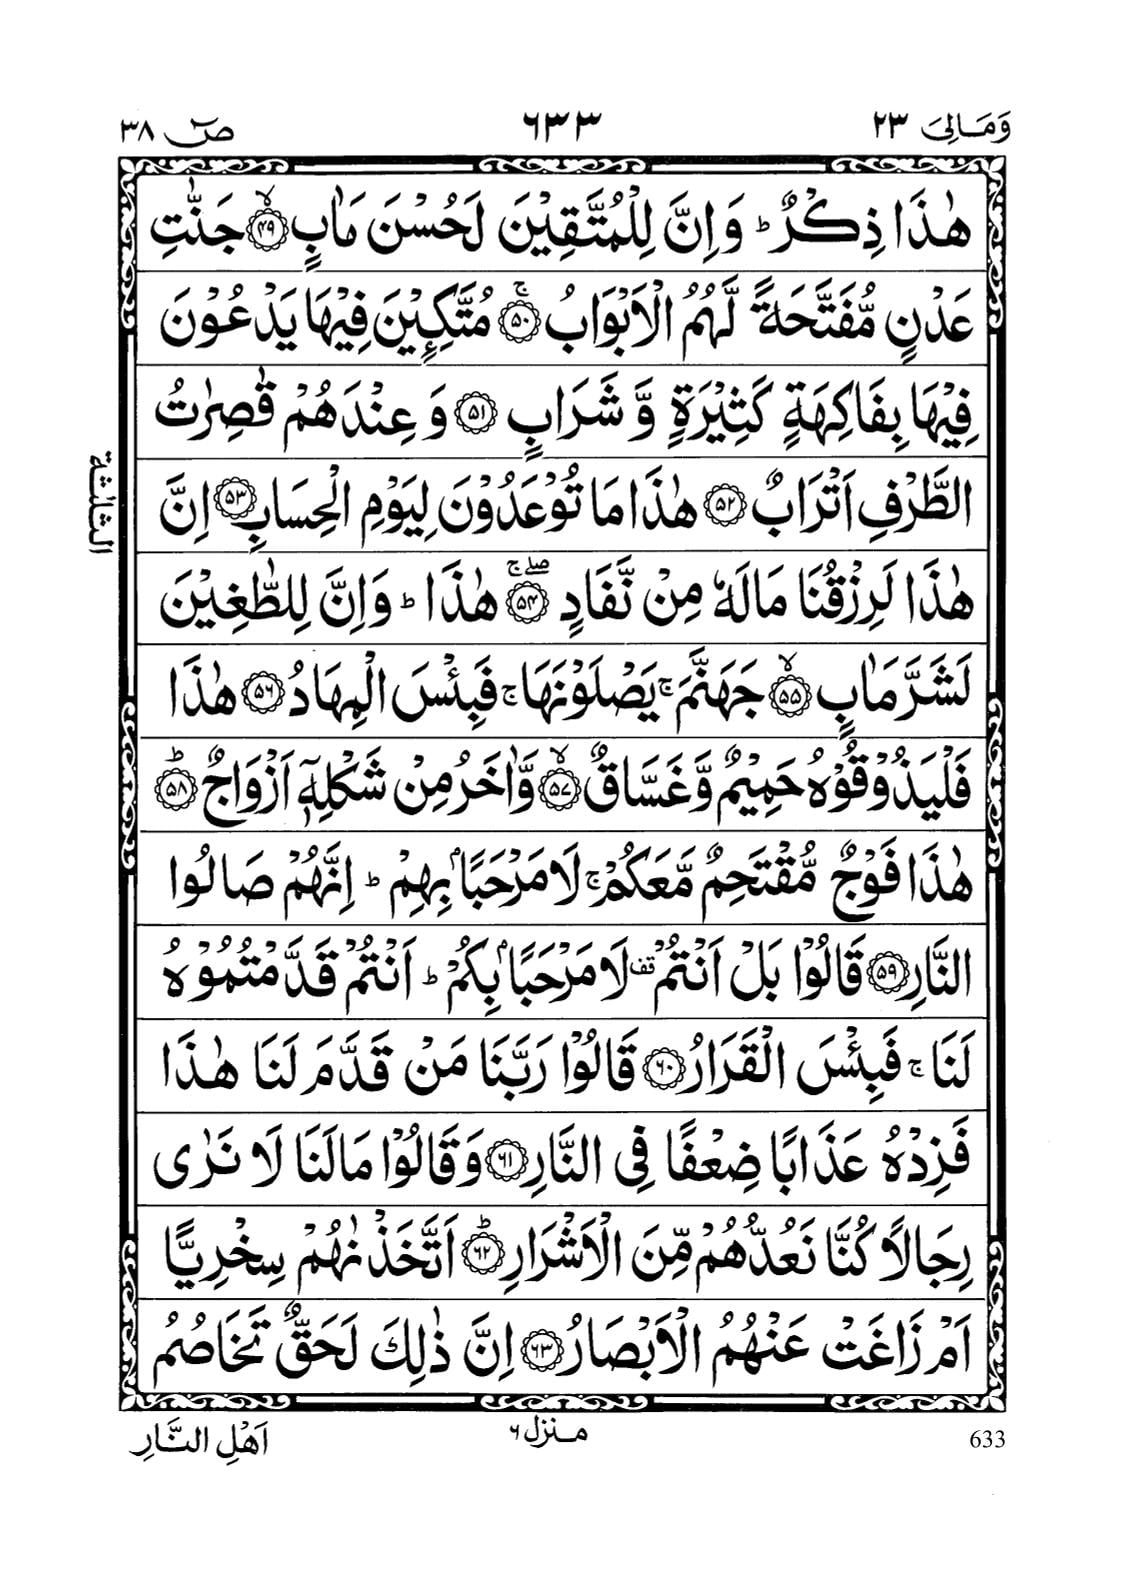 وَمَالِىَ ٢٣ ٦٣٣ صٓ ٣٨
هٰذَا ذِكْرٌ ؕ وَاِنَّ لِلْمُتَّقِيْنَ لَحُسْنَ مَاٰبٍ ۙ﴿۴۹﴾ جَنّٰتِ
عَدْنٍ مُّفَتَّحَةً لَّهُمُ الْاَبْوَابُ ۚ﴿۵۰﴾ مُتَّكِـِٕيْنَ فِيْهَا يَدْعُوْنَ
فِيْهَا بِفَاكِهَةٍ كَثِيْرَةٍ وَّ شَرَابٍ ﴿۵۱﴾ وَ عِنْدَهُمْ قٰصِرٰتُ
الطَّرْفِ اَتْرَابٌ ﴿۵۲﴾ هٰذَا مَا تُوْعَدُوْنَ لِيَوْمِ الْحِسَابِ ﴿۵۳﴾ اِنَّ
الثلٰثة
هٰذَا لَرِزْقُنَا مَالَهٗ مِنْ نَّفَادٍ ۖۚ﴿۵۴﴾ هٰذَا ؕ وَاِنَّ لِلطّٰغِيْنَ
لَشَرَّ مَاٰبٍ ۙ﴿۵۵﴾ جَهَنَّمَ ۚ يَصْلَوْنَهَا ۚ فَبِئْسَ الْمِهَادُ ﴿۵۶﴾ هٰذَا
فَلْيَذُوْقُوْهُ حَمِيْمٌ وَّغَسَّاقٌ ۙ﴿۵۷﴾ وَّاٰخَرُ مِنْ شَكْلِهٖۤ اَزْوَاجٌ ؕ﴿۵۸﴾
هٰذَا فَوْجٌ مُّقْتَحِمٌ مَّعَكُمْ ۚ لَا مَرْحَبًاۢ بِهِمْ ؕ اِنَّهُمْ صَالُوا
النَّارِ ﴿۵۹﴾ قَالُوْا بَلْ اَنْتُمْ قف لَا مَرْحَبًاۢ بِكُمْ ؕ اَنْتُمْ قَدَّمْتُمُوْهُ
لَنَا ۚ فَبِئْسَ الْقَرَارُ ﴿۶۰﴾ قَالُوْا رَبَّنَا مَنْ قَدَّمَ لَنَا هٰذَا
فَزِدْهُ عَذَابًا ضِعْفًا فِى النَّارِ ﴿۶۱﴾ وَقَالُوْا مَالَنَا لَا نَرٰى
رِجَالًا كُنَّا نَعُدُّهُمْ مِّنَ الْاَشْرَارِ ؕ﴿۶۲﴾ اَتَّخَذْنٰهُمْ سِخْرِيًّا
اَمْ زَاغَتْ عَنْهُمُ الْاَبْصَارُ ﴿۶۳﴾ اِنَّ ذٰلِكَ لَحَقٌّ تَخَاصُمُ
633 منزل ٦ اَهْلِ النَّارِ